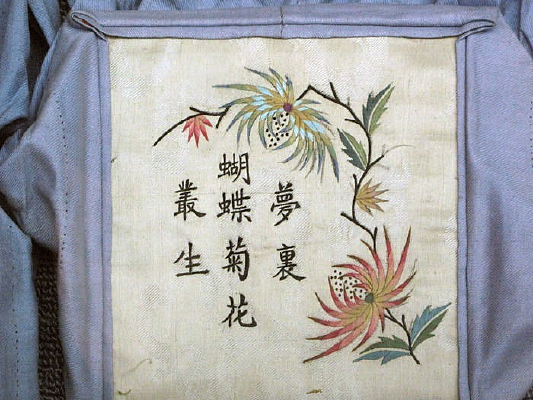 夢裏
蝴蝶菊花
叢生